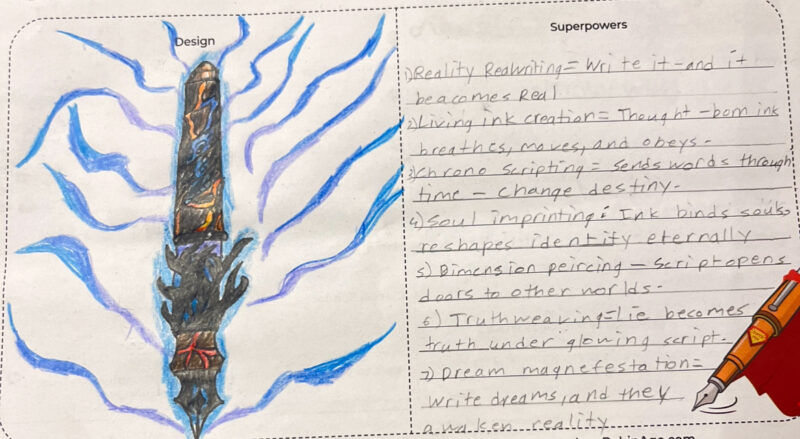 Design
Superpowers
1) Reality Realwriting= Write it-and it
beacomes Real
2) Living ink creation= Thought-born ink
breathes, moves, and obeys.
3) Chrono scripting= sends words through
time - change destiny.
4) Soul imprinting: Ink binds souls,
reshapes identity eternally
5) Dimension peircing - script opens
doors to other worlds.
6) Truthweaving=lie becomes
truth under glowing script.
7) Dream magnefestation=
write dreams, and they
awaken reality